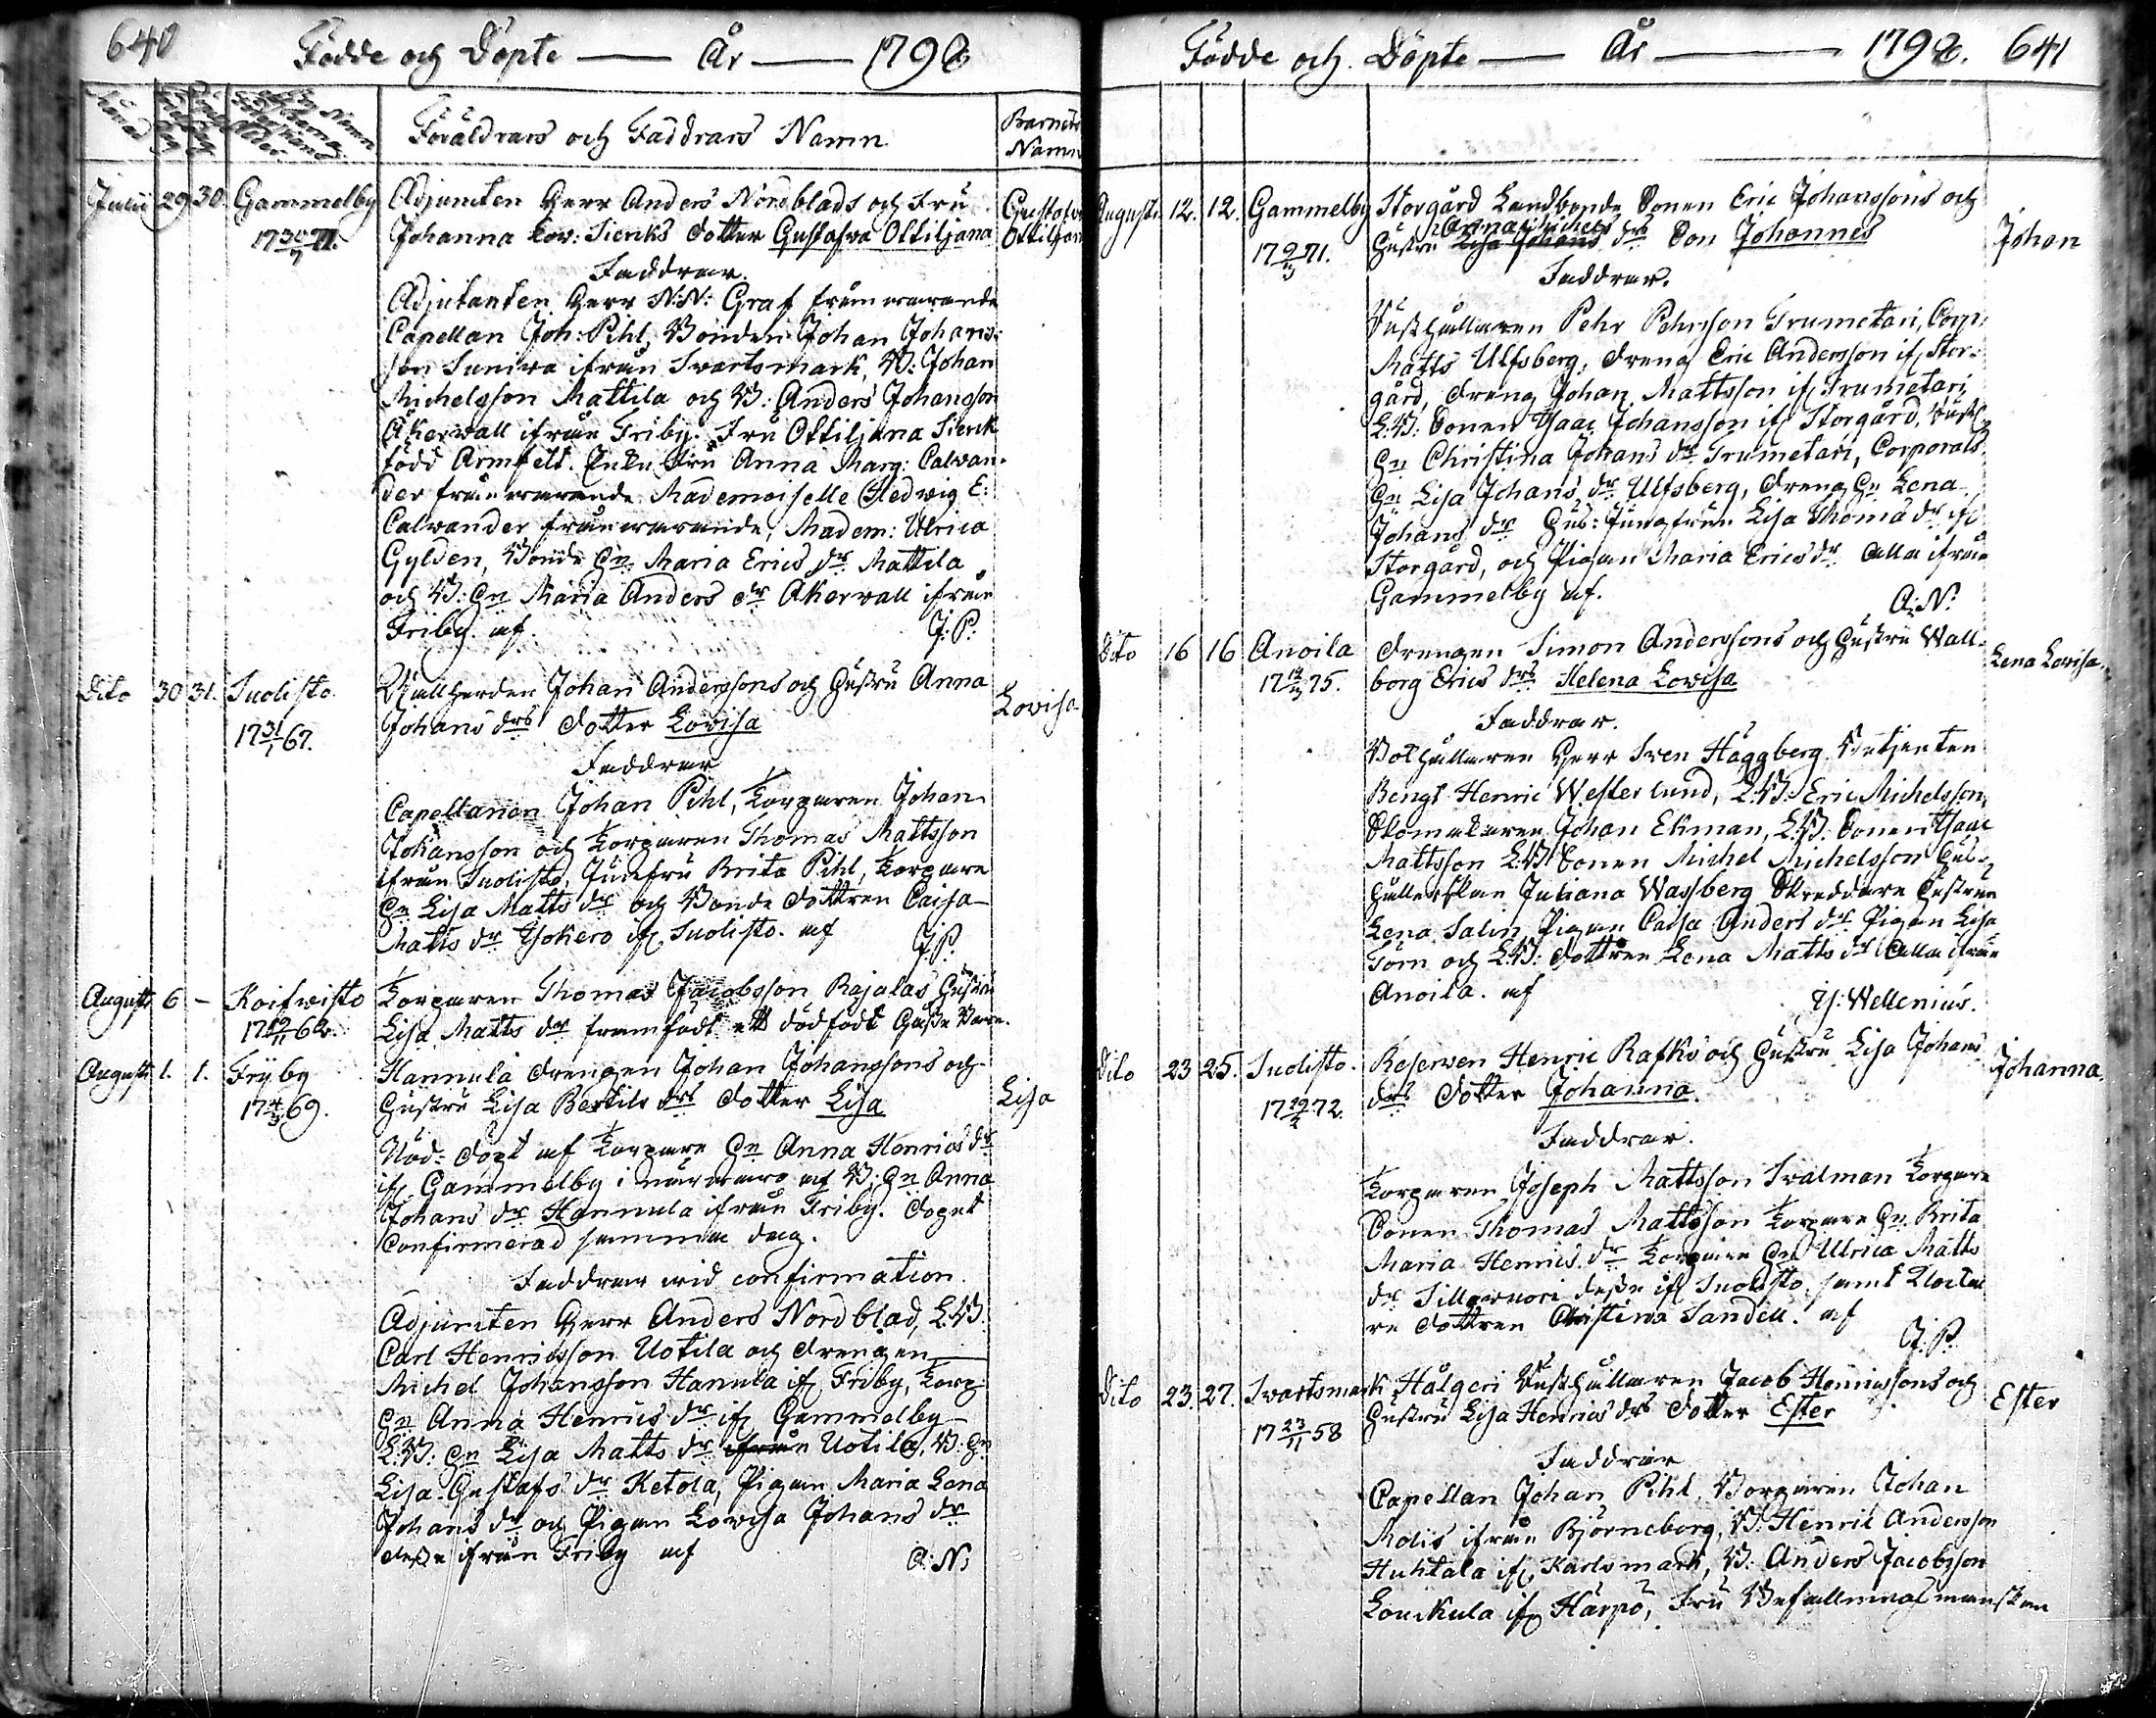 640
Födde och Döpte — År — 1798
Föräldrars och Faddrars Namn
Barnets
Namn
Julii 29 30. Gammelby
17 30/7 71.
Adjuncten Herr Anders Nordblads och Fru
Johanna Lov: Siercks dotter Gustafva Ottiljana
Gustafva
Ottiljana
Faddrar.
Adjutanten Herr N:N: Graf frånvarande
Capellan Joh: Pihl, Bonden Johan Johans-
son Suniva ifrån Svartsmark, B: Johan
Michelsson Mattila och B: Anders Johansson
Åkervall ifrån Friby. Fru Ottiljana Sierck
född Armfelt. Enke Fru Anna Marg: Calvan-
der frånvarande Mademoiselle Hedwig E:
Calvander frånvarande, Madem: Ulrica
Gylden, Bonde Hn Maria Erics dr Mattila
och B: Hn Maria Anders dr Åkervall ifrån
Friby. af
J:P:
Dito 30 31. Suolisto
17 31/1 67.
Vallherden Johan Anderssons och Hustru Anna
Johans drs dotter Lovisa
Lovisa
Faddrar
Capellanen Johan Pihl, Torparen Johan
Johansson och Torparen Thomas Mattsson
ifrån Suolisto, Jumfru Brita Pihl, Torpare
Hn Lisa Matts dr och Bonde dottren Caisa
Matts dr Ysokero if. Suolisto. af
J:P.
Augusti 6 – Koifwisto
Torparen Thomas Jacobsson Rajalas Hustru
Lisa Matts dr framfödt ett dödfödt Gosse Barn.
Augusti 1. 1. Fryby
17 4/3 69.
Hannula drengen Johan Johanssons och
Hustru Lisa Bertils drs dotter Lisa
Lisa
Nöd: döpt af Torpare Hn Anna Henrics dr
if. Gammelby i närvaro af B: Hn Anna
Johans dr Hannula ifrån Friby. dopet
Confirmerad samma dag.
Faddrar vid confirmation
Adjuncten Herr Anders Nordblad, L:B:
Carl Henricsson Uotila och drengen
Michel Johansson Hanula if. Friby, Torp:
Hn Anna Henrics dr if. Gammelby
L:B: Hn Lisa Matts dr ifrån Uotila, B: Hn
Lisa Gustafs dr Ketola, Pigan Maria Lena
Johans dr och Pigan Lovisa Johans dr
desse ifrån Friby af
A:N:
Födde och Döpte — År — 1798. 641
Augusti 12. 12. Gammelby
17 71.
Storgård Landbonde Sonen Eric Johanssons och
Anna Michels
Hustru Lisa Johans drs Son Johannes
Johan
Faddrar.
Rusthållaren Pehr Pehrsson Trumetari, Corp:
Matts Ulfsberg, dreng Eric Andersson if. Stor-
gård, dreng Johan Mattsson if. Trumetari
L:B: Sonen Isaac Johansson if. Storgård, Rusth:
Hn Christina Johans dr Trumetari, Corporals
Hn Lisa Johans dr Ulfsberg, dreng Hn Lena
Johans dr Hus: Jungfrun Lisa Thomas dr if.
Storgård, och Pigan Maria Erics dr alla ifrån
Gammelby af.
A:N:
Dito 16 16 Anoila
17 75.
Drengen Simon Anderssons och Hustru Wall-
borg Erics drs Helena Lovisa
Lena Lovisa.
Faddrar.
Bokhållaren Herr Sven Häggberg Betjenten
Bengt Henric Westerlund, L:B: Eric Michelsson,
Skomakaren Johan Ekman, L:B: Sonen Isaac
Mattsson L:B Sonen Michel Michelsson Hus-
hållerskan Juliana Wassberg Skreddare Hustrun
Lena Salin, Pigan Caisa Anders dr Pigan Lisa
Törn och L:B: dottren Lena Matts dr alla ifrån
Anoila. af
Is: Wellenius.
Dito 23 25. Suolisto.
17 72.
Reserven Henric Rafks och Hustru Lisa Johans
drs dotter Johanna.
Johanna
Faddrar.
Torparen Joseph Mattsson Svalman Torpare
Sonen Thomas Mattsson Torpare Hn Brita
Maria Henrics dr Torpare Hn Ulrica Matts
dr Sillanvori desse if. Suolisto, samt Klocka-
re dottren Christina Sandell. af
J:P.
Dito 23. 27. Svartsmark
17 23/11 58
Hälgeri Rusthållaren Jacob Henricssons och
Hustru Lisa Henrics drs dotter Ester
Ester
Faddrar
Capellan Johan Pihl, Borgaren Johan
Molis ifrån Björneborg, B: Henric Andersson
Huhtala if. Karlsmark, B: Anders Jacobsson
Loukula if. Härpö, Fru Befallningsmanskan